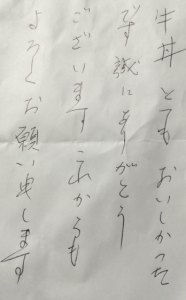 牛丼とてもおいしかった
です誠にありがとう
ございますこれからも
よろしくお願い申します